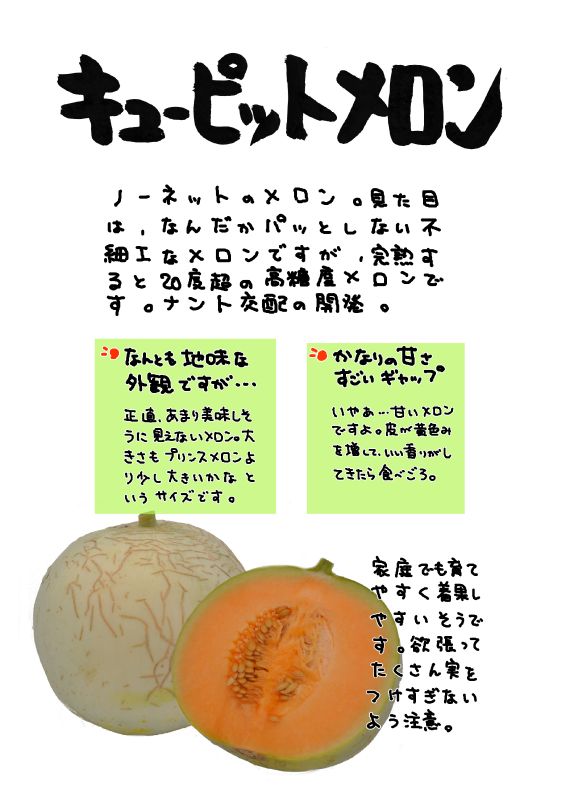 キューピットメロン
ノーネットのメロン。見た目
は、なんだかパッとしない不
細工なメロンですが、完熟す
ると20度超の高糖度メロンで
す。ナント交配の開発。
なんとも地味な
外観ですが…
正直、あまり美味しそ
うに見えないメロン。大
きさもプリンスメロンよ
り少し大きいかなと
いうサイズです。
かなりの甘さ
すごいギャップ
いやぁ…甘いメロン
ですよ。皮が黄色み
を増して、いい香りがし
てきたら食べごろ。
家庭でも育て
やすく着果し
やすいそうで
す。欲張って
たくさん実を
つけすぎない
よう注意。